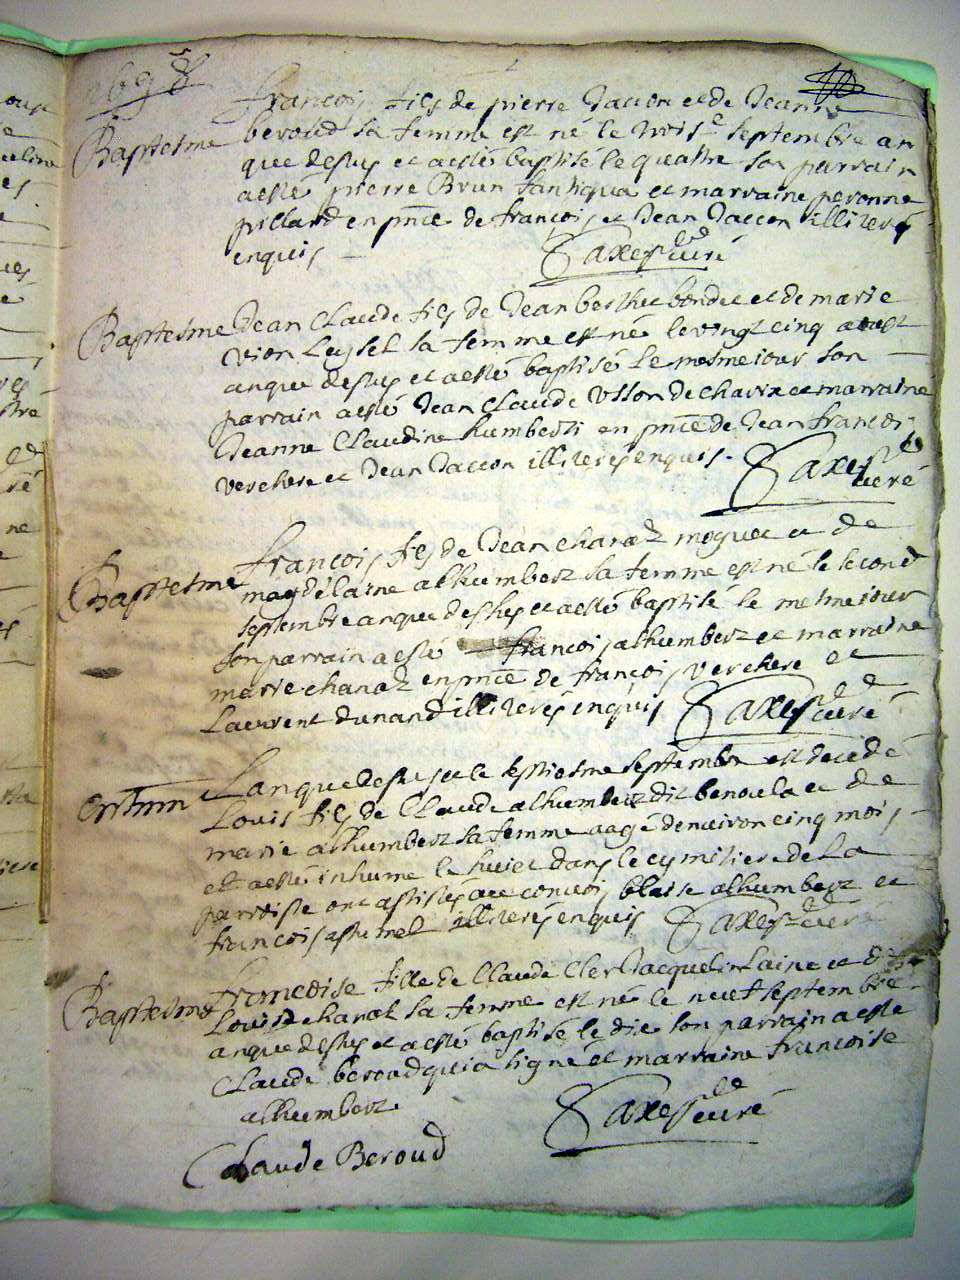 1698
Baptesme
francois fils de pierre Jaccon et de Jeanne
beroud sa femme est né le trois.e septembre an
que desus et a esté baptisé le quattre son parrain
a esté pierre Brun fantiqua et marraine peronne
pillard en pnce de francois et Jean Jaccon illiterés
enquis Saxes curé
Baptesme
Jean Claude fils de Jean berthet bondet et de marie
vion Luysel sa femme est né le vingt cinq aoust
an que desus et a esté baptisé le mesme iour son
parrain a esté Jean Claude Usson de charix et marraine
Jeanne Claudine humbert en pnce de Jean francois
verchere et Jean Jaccon illiterés enquis. Saxes curé
Baptesme
francois fils de Jean chanal moguet et de
magdelaine alhumbert sa femme est né le second
septembre an que desus et a esté baptisé le mesme iour
son parrain a esté francois alhumbert et marraine
marie chanal en pnce de francois verchere et
Laurent dunand illiterés enquis Saxes curé
Lan que desus et le septiesme septembre est decedé
Louis fils de Claude alhumbert dit benoula et de
marie alhumbert sa femme aagé denviron cinq mois
et a esté inhume le huict dans le cymitiere de La
parroisse ont assistés au convoi blaise alhumbert et
francois illiterés enquis Saxes curé
Baptesme
francoise fille de Claude Cler Jacquelin Laine et de
Louise chanal sa femme est née le neuf septembre
an que desus et a esté baptisé le dix son parrain a esté
Claude beroud qui a signé et marraine francoise
alhumbert Saxes curé
Claude Beroud